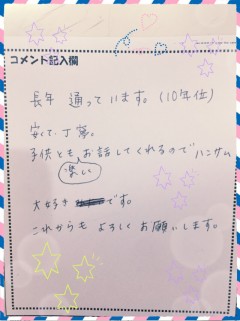 コメント記入欄
長年 通っています。(10年位)
安くて、丁寧。
子供ともお話してくれるので
楽しい
大好きです。
これからも よろしくお願いします。